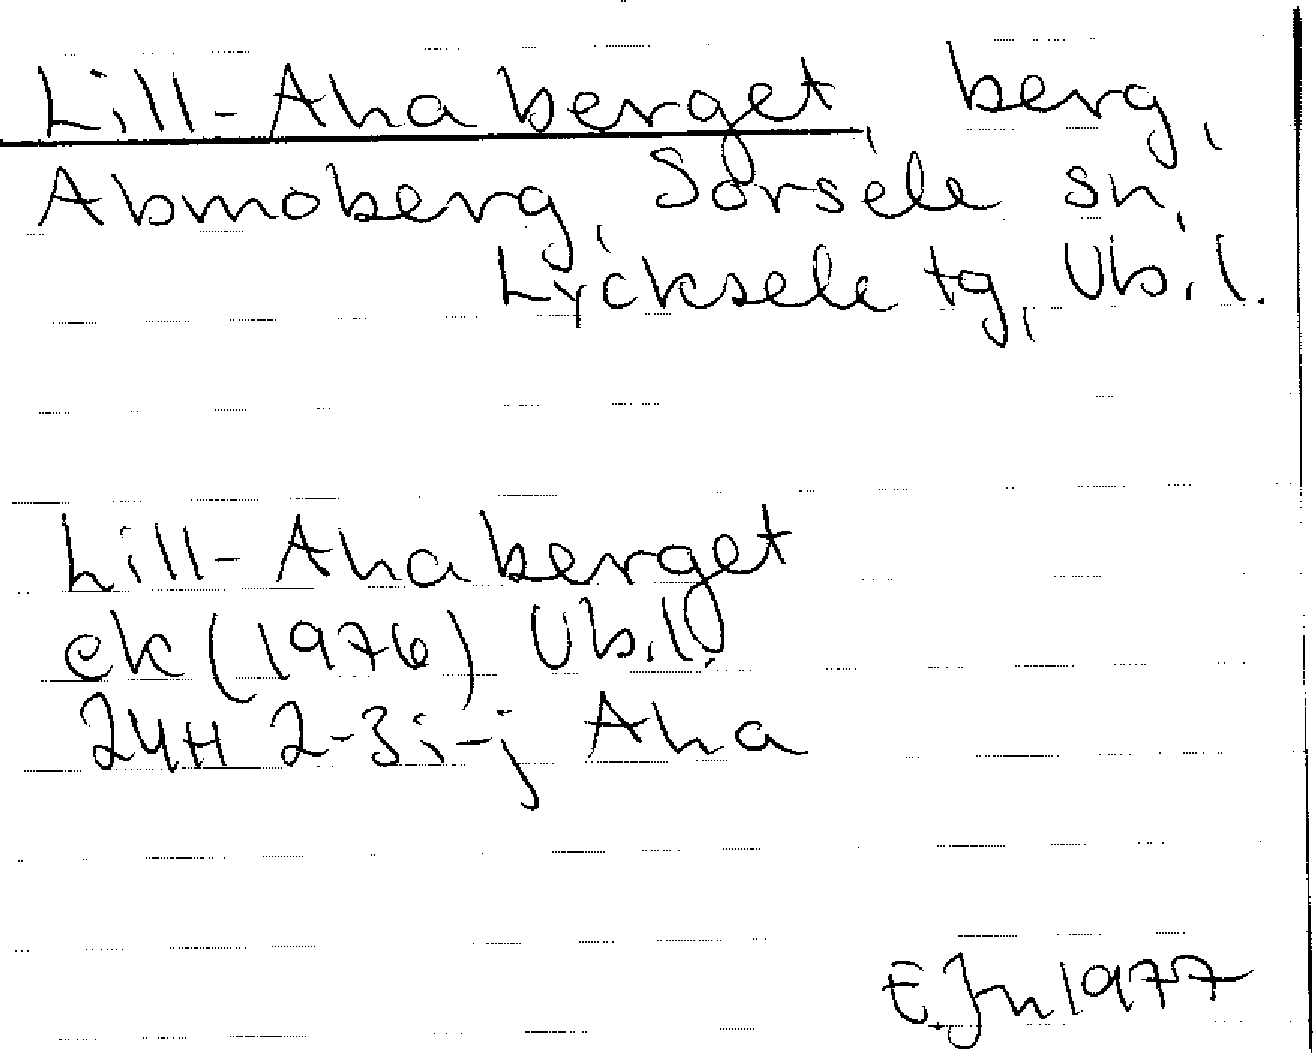 Lill-Ahaberget, berg,
Abmoberg, Sorsele sn,
Lycksele tg, Vb.l.
Lill-Ahaberget
ek (1976) Vb.l.
24H 2-3i-j Aha
E.Jn 1977